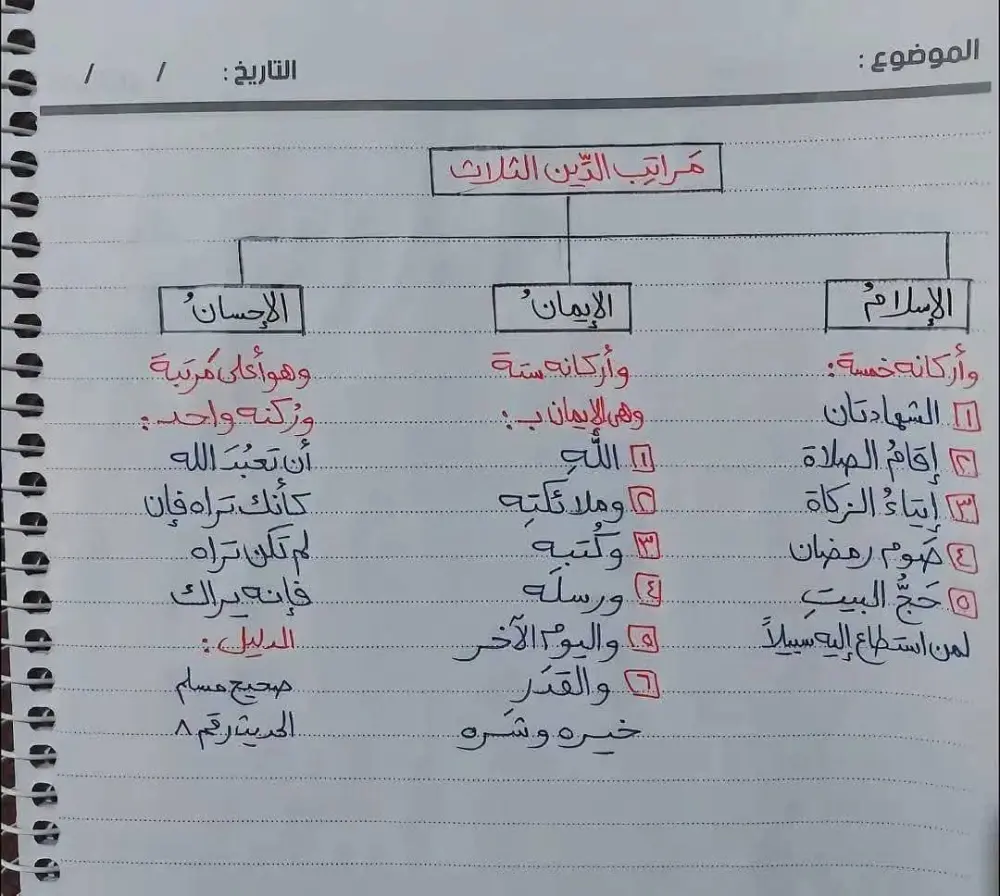 الموضوع :
التاريخ : / /
مَراتِب الدِّين الثلاث
الإسلامُ
وأركانه خمسة:
١ الشهادتان
٢ إقامُ الصلاة
٣ إيتاءُ الزكاة
٤ صَوم رمضان
٥ حَجُّ البيتِ
لمن استطاع إليه سبيلاً
الإيمانُ
وأركانه ستة
وهي الإيمان ب:
١ اللَّهِ
٢ وملائكَتِه
٣ وكُتبه
٤ ورسلَه
٥ واليوم الآخر
٦ والقدَر
خيره وشَره
الإحسانُ
وهو أعلى مَرتبة
ورُكنه واحد:
أن تَعبُدَ الله
كأنك تراه فإن
لم تَكن تراه
فإنه يراك
الدليل:
صحيح مسلم
الحديث رقم ٨